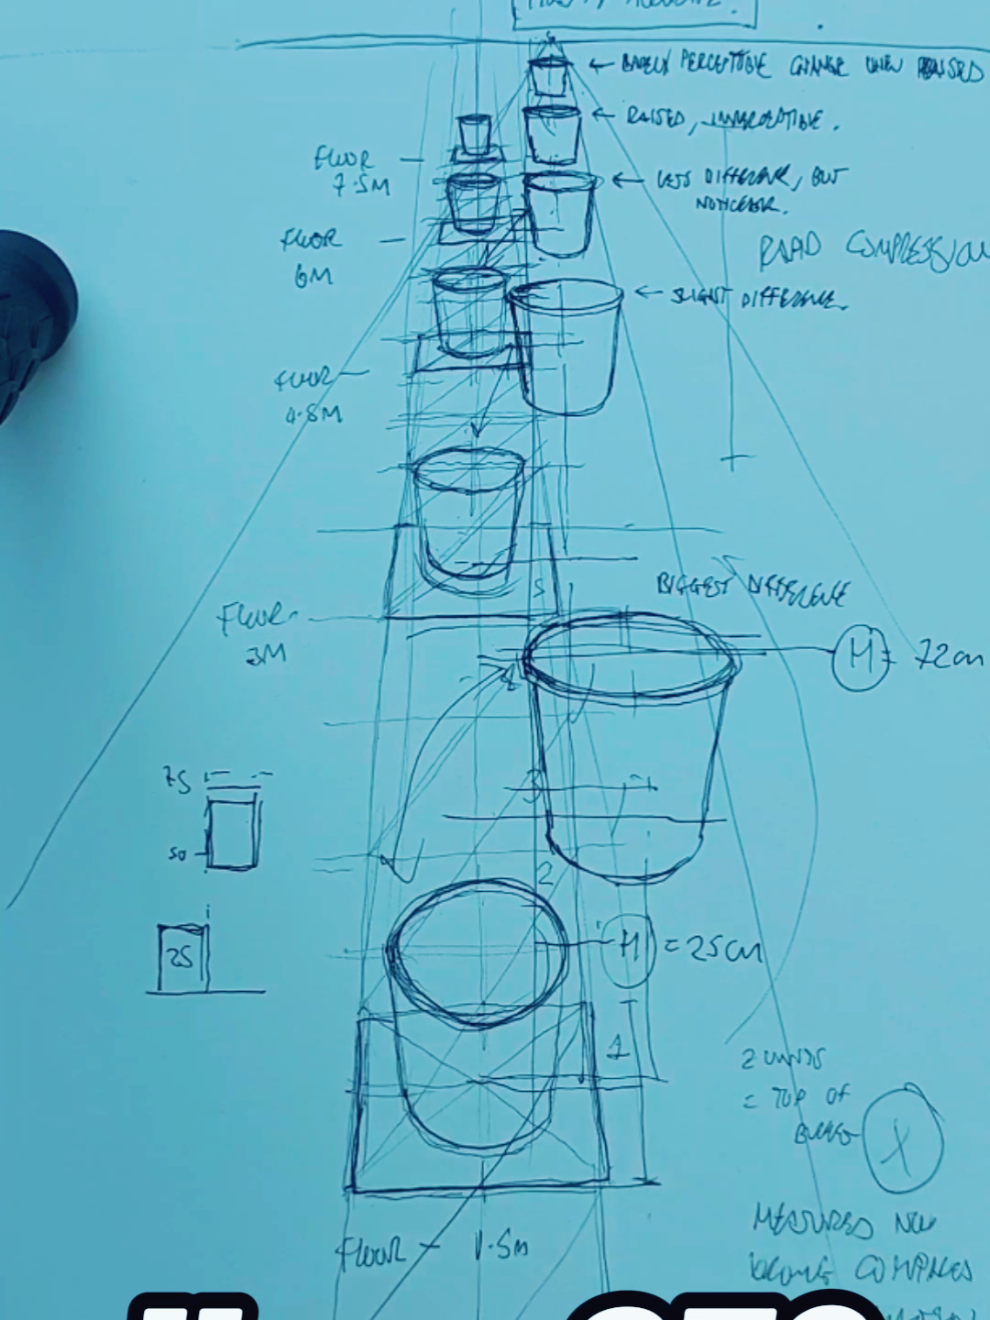 ← BARELY PERCEPTIBLE CHANGE WHEN RAISED
← RAISED, IMPERCEPTIBLE.
FLOOR
7.5M
← LESS DIFFERENCE, BUT
NOTICEABLE.
FLOOR
6M
RAPID COMPRESSION
← SLIGHT DIFFERENCE.
FLOOR
4.8M
5
BIGGEST DIFFERENCE
FLOOR
3M
H = 72cm
4
75
3
50
2
H = 25cm
25
1
2 UNITS
= TOP OF
X
MEASURES NOW
FLOOR - 1.5m
COMPRESS